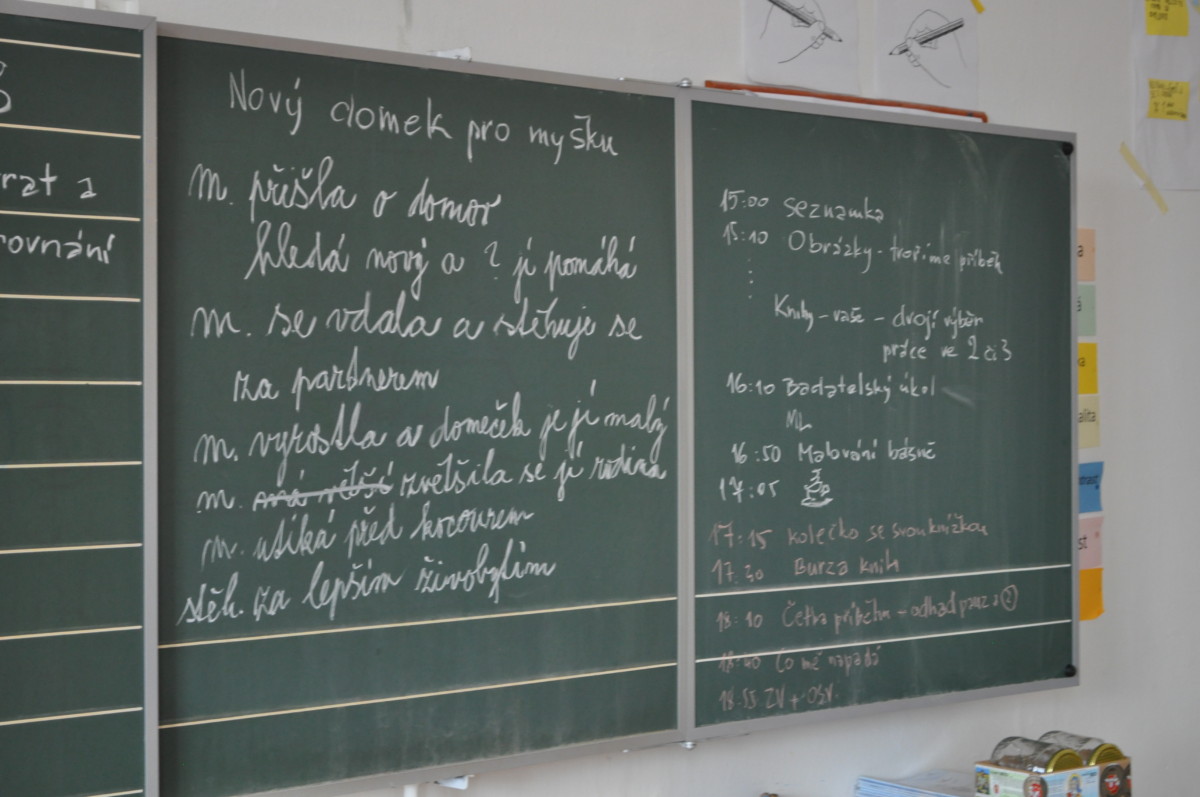 rat a
rovnání
Nový domek pro myšku
m. přišla o domov
hledá nový a ? jí pomáhá
m. se vdala a stěhuje se
za partnerem
m. vyrostla a domeček je jí malý
m. má větší zvětšila se jí rodina
m. utíká před kocourem
stěh. za lepším živobytím
15:00 seznamka
15:10 Obrázky - tvoříme příběh
Knihy - vaše - dvojí výběr
práce ve 2 či 3
16:10 Badatelský úkol
ML
16:50 Malování básně
17:05
17:15 kolečko se svou knížkou
17:30 Burza knih
18:10 Četba příběhu - odhad 2
18:40 Co mě napadá
18:55 ZV + OSV.